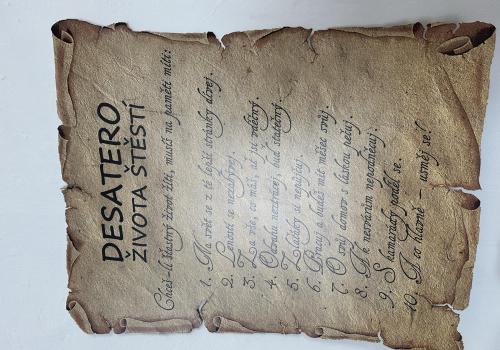 DESATERO
ŽIVOTA ŠTĚSTÍ
Chceš-li šťastný život žíti, musíš na paměti míti:
1. Na svět se z té lepší stránky dívej.
2. Leností se nezabývej.
3. Za vše, co máš, ať jsi vděčný.
4. Odvahu neztrácej, buď statečný.
5. Zvláštky si nepůjčuj.
6. Pracuj a budeš mít měšec svůj.
7. O svůj domov s láskou pečuj.
8. Ke nesvárům nepodněcuj.
9. S kamarády poděl se.
10. A co hlavně - usměj se!